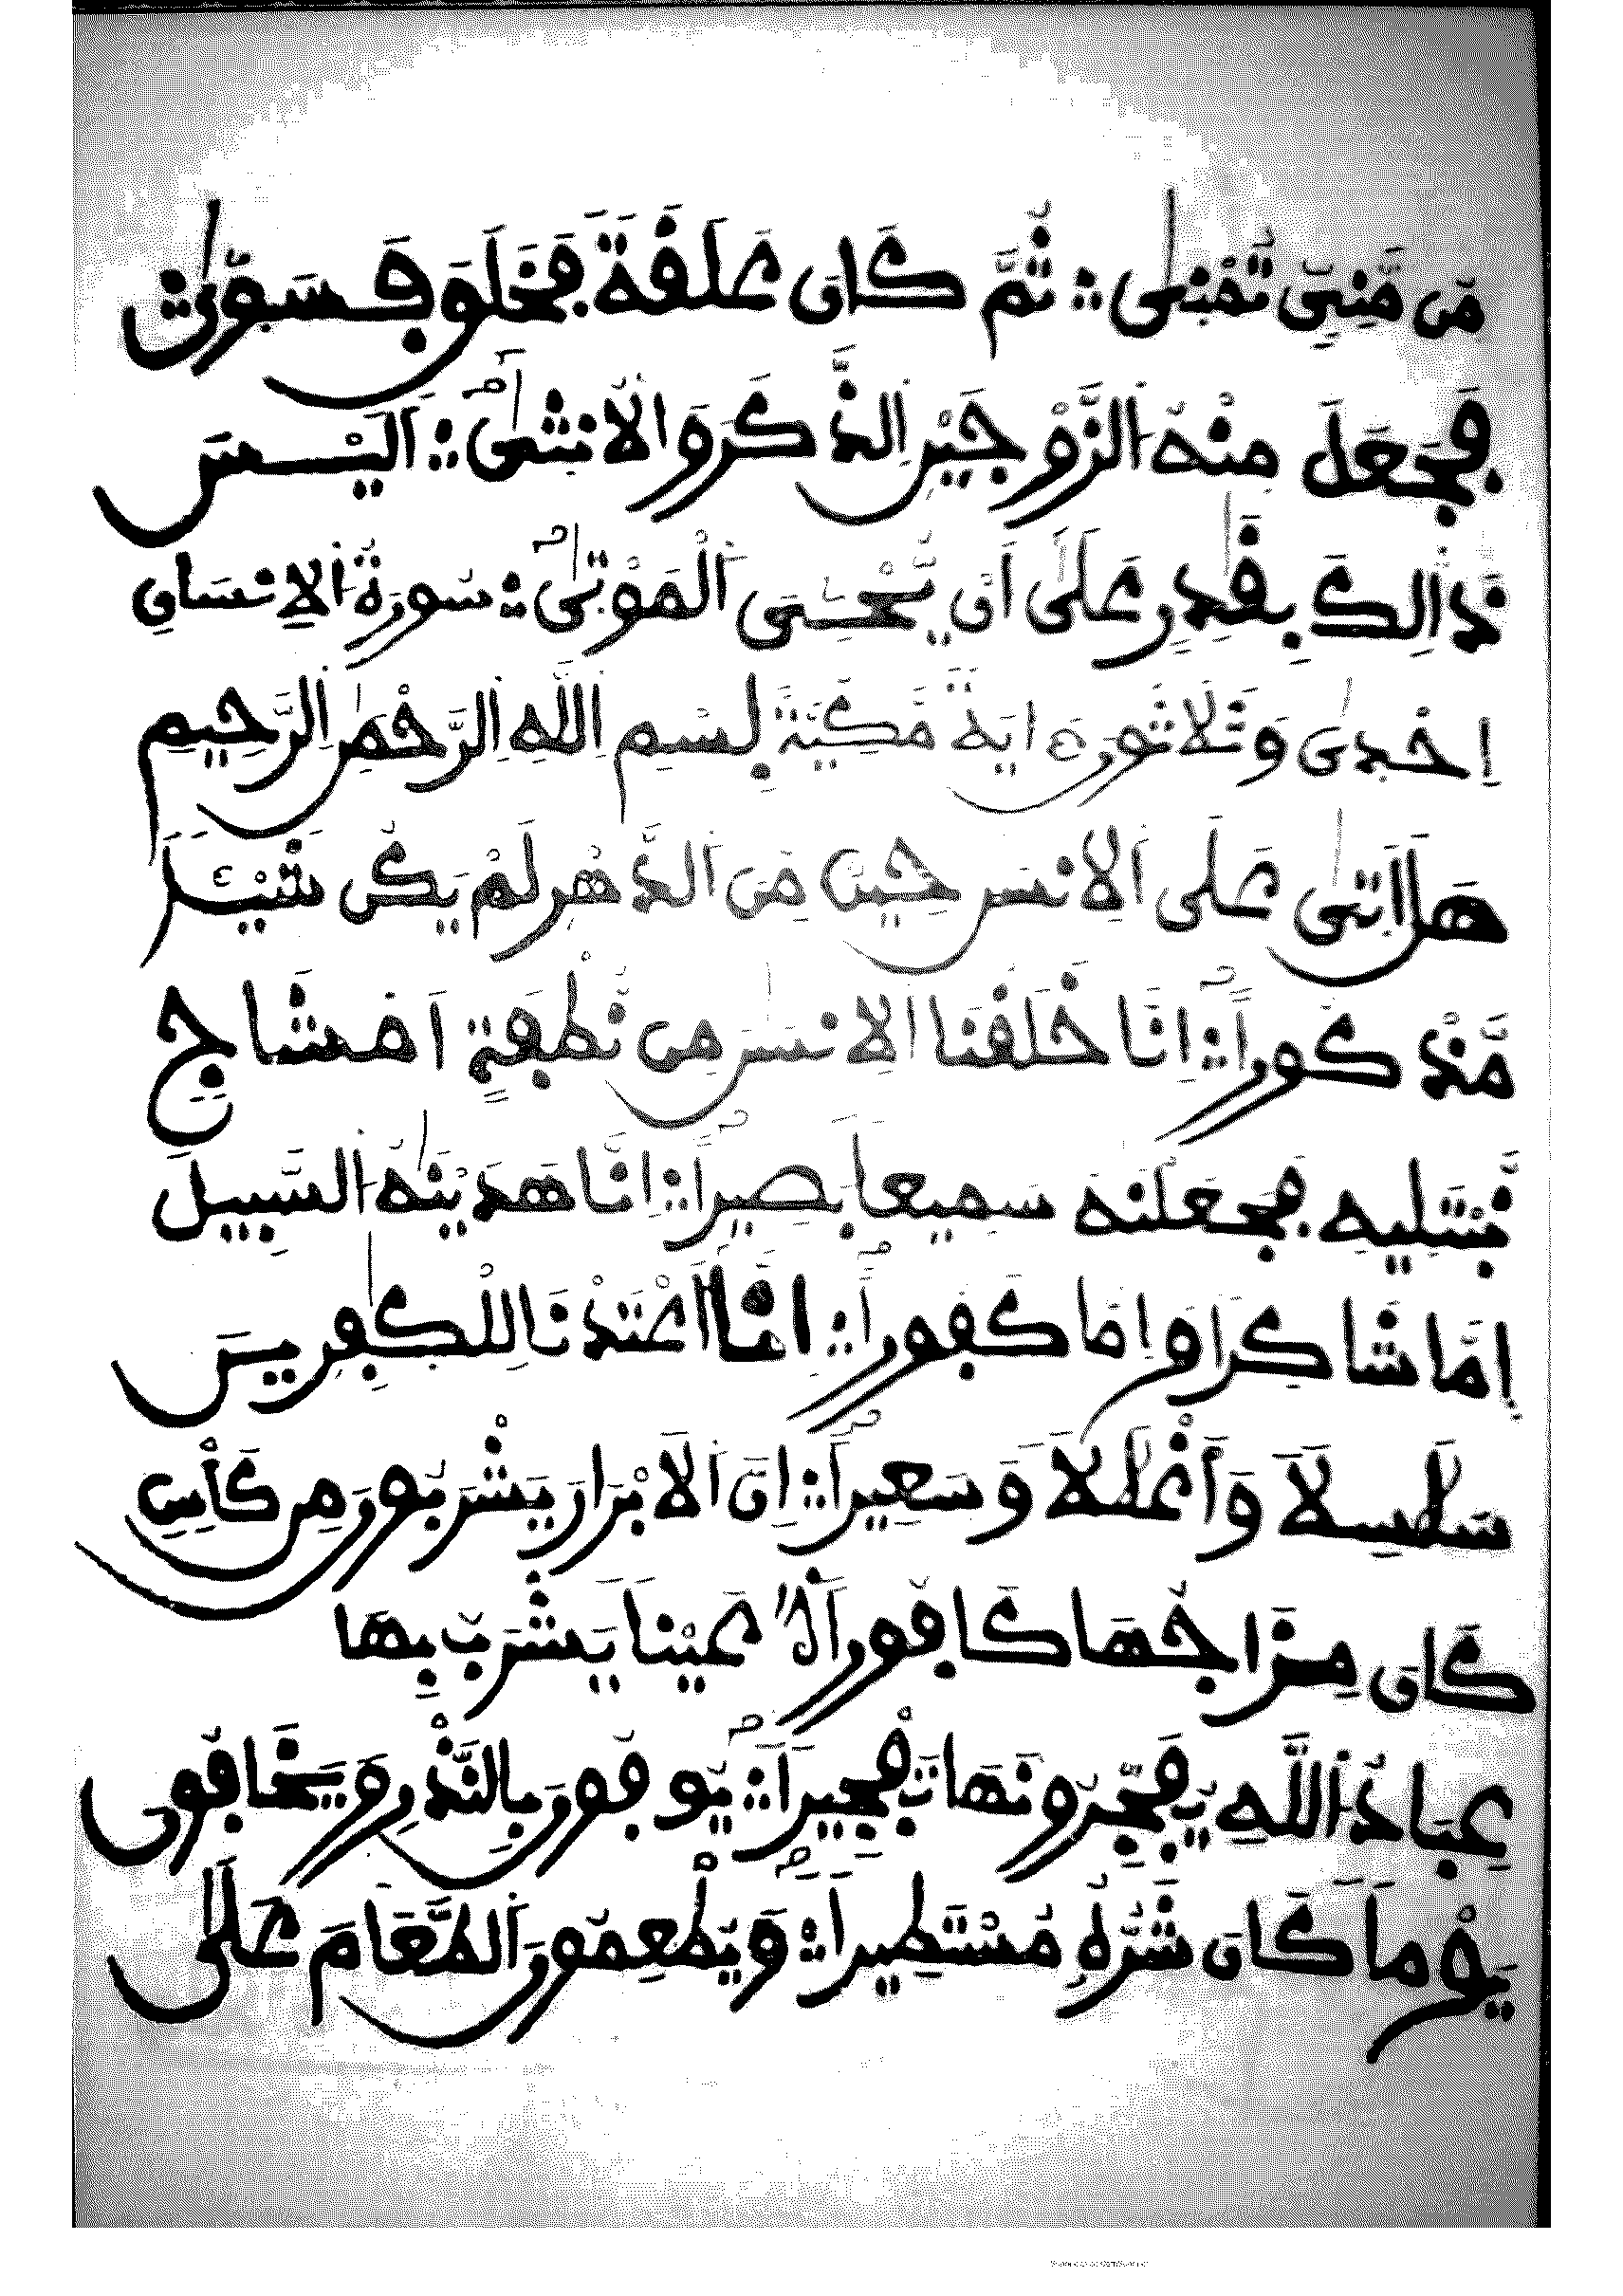 مِّن مَّنِيٍّ تُمْنَىٰ ۝ ثُمَّ كَانَ عَلَقَةً فَخَلَقَ فَسَوَّىٰ
فَجَعَلَ مِنْهُ الزَّوْجَيْنِ الذَّكَرَ وَالْأُنثَىٰ ۝ أَلَيْسَ
ذَٰلِكَ بِقَٰدِرٍ عَلَىٰ أَن يُّحْـِۧيَ الْمَوْتَىٰ ۝ سورة الانسان
إحدى وثلاثون ءاية مكية بِسْمِ اللَّهِ الرَّحْمَٰنِ الرَّحِيمِ
هَلْ أَتَىٰ عَلَى الْإِنسَٰنِ حِينٌ مِّنَ الدَّهْرِ لَمْ يَكُن شَيْـًٔا
مَّذْكُورًا ۝ إِنَّا خَلَقْنَا الْإِنسَٰنَ مِن نُّطْفَةٍ أَمْشَاجٍ
نَّبْتَلِيهِ فَجَعَلْنَٰهُ سَمِيعًا بَصِيرًا ۝ إِنَّا هَدَيْنَٰهُ السَّبِيلَ
إِمَّا شَاكِرًا وَإِمَّا كَفُورًا ۝ إِنَّا أَعْتَدْنَا لِلْكَٰفِرِينَ
سَلَٰسِلًا وَأَغْلَٰلًا وَسَعِيرًا ۝ إِنَّ الْأَبْرَارَ يَشْرَبُونَ مِن كَأْسٍ
كَانَ مِزَاجُهَا كَافُورًا ۝ عَيْنًا يَشْرَبُ بِهَا
عِبَادُ اللَّهِ يُفَجِّرُونَهَا تَفْجِيرًا ۝ يُوفُونَ بِالنَّذْرِ وَيَخَافُونَ
يَوْمًا كَانَ شَرُّهُ مُسْتَطِيرًا ۝ وَيُطْعِمُونَ الطَّعَامَ عَلَىٰ